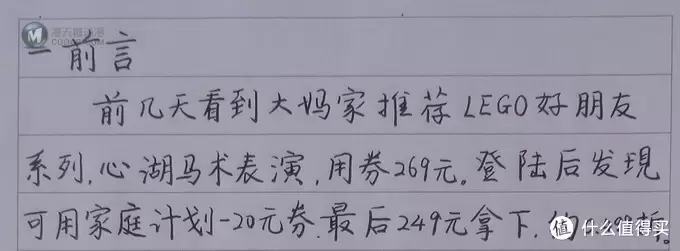 一前言
前几天看到大妈家推荐LEGO好朋友
系列,心湖马术表演,用券269元。登陆后发現
可用家庭计划-20元券.最后249元拿下,
值 什么值得买